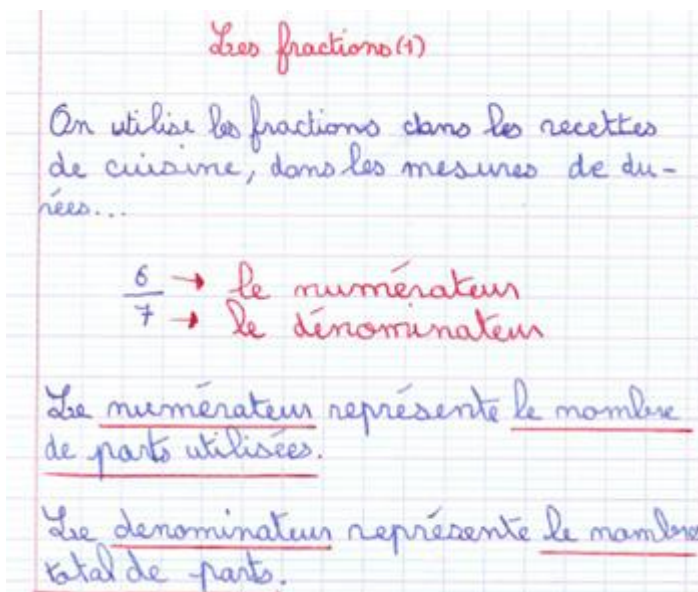 Les fractions (1)
On utilise les fractions dans les recettes
de cuisine, dans les mesures de du-
rées...
6 → le numérateur
7 → le dénominateur
Le numérateur représente le nombre
de parts utilisées.
Le denominateur représente le nombre
total de parts.